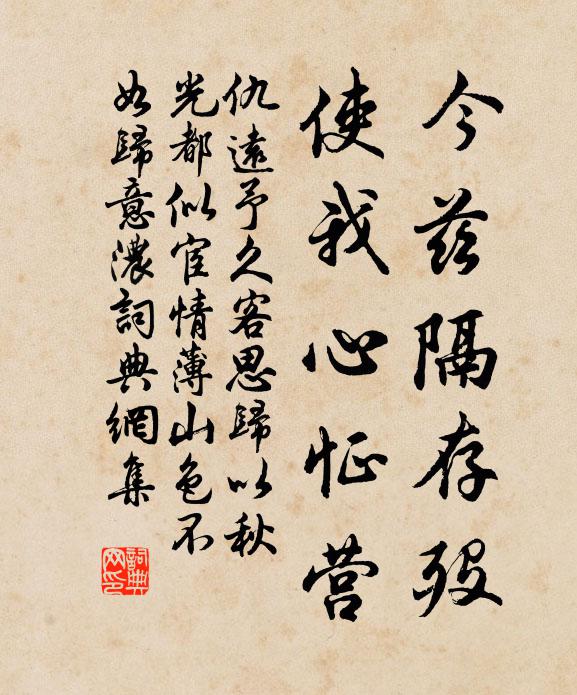 今兹隔存殁
使我心怔营
仇遠予久客思歸以秋
光都似宦情薄山色不
如歸意濃詞典網集
詞典网印